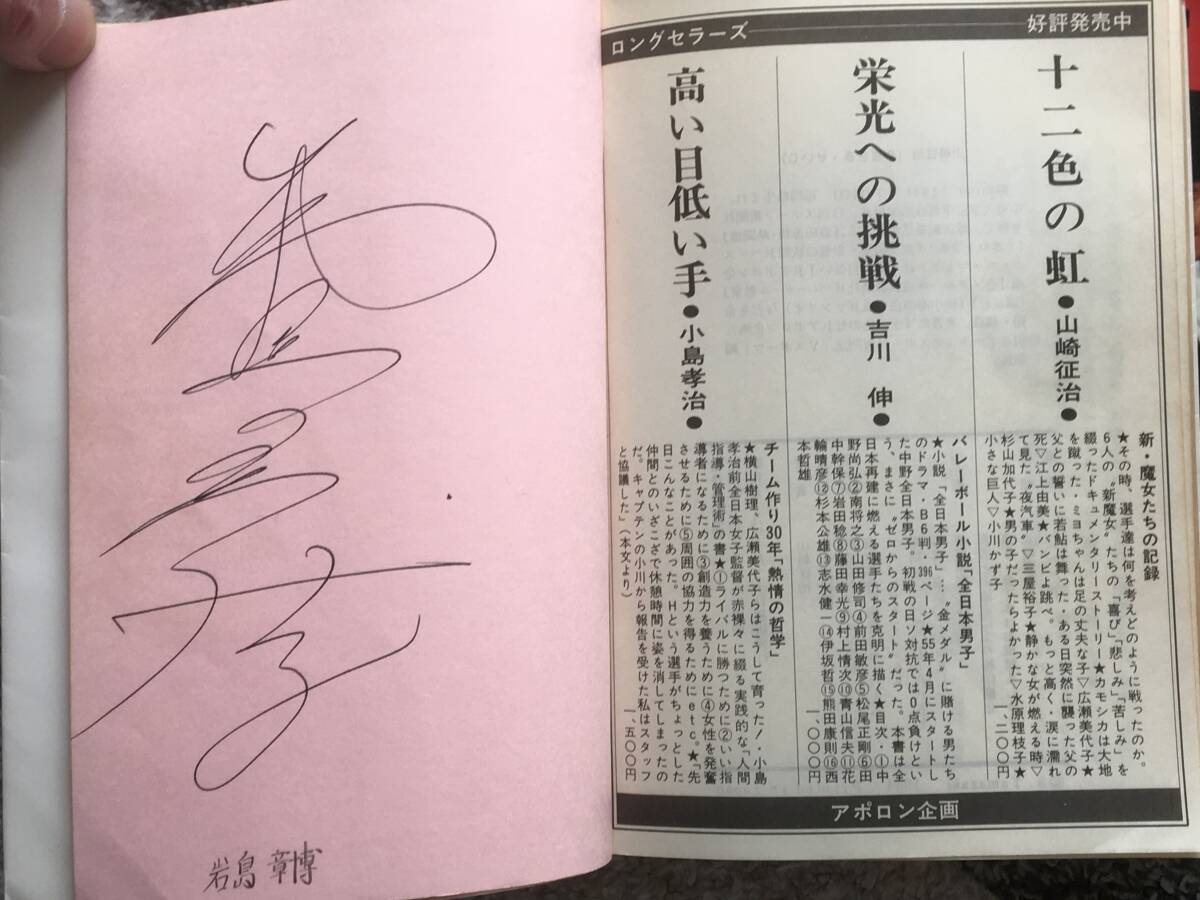 岩島 章博
ロングセラーズ
好評発売中
十二色の虹●山崎征治●
新・魔女たちの記録
★その時、選手達は何を考えどのように戦ったのか。
6人の〝新魔女〟たちの「喜び」「悲しみ」「苦しみ」を
綴ったドキュメンタリーストーリー★カモシカは大地
を蹴った・ミヨちゃんは足の丈夫な子▽広瀬美代子★
父との誓いに若鮎は舞った・ある日突然に襲った父の
死▽江上由美★バンビよ跳べ。もっと高く・涙に濡れ
て見た〝夜汽車〟▽三屋裕子★静かな女が燃える時▽
杉山加代子★男の子だったらよかった▽水原理枝子★
小さな巨人▽小川かず子
一、二〇〇円
栄光への挑戦●吉川 伸●
バレーボール小説「全日本男子」
★小説「全日本男子」…〝金メダル〟に賭ける男たち
のドラマ・B6判・396ページ★55年4月にスタートし
た中野全日本男子。初戦の日ソ対抗では0点負けとい
う、まさに〝ゼロからのスタート〟だった。本書は全
日本再建に燃える選手たちを克明に描く★目次・①中
野尚弘②南将之③山田修司④前田敏彦⑤松尾正剛⑥田
中幹保⑦岩田稔⑧藤田幸光⑨村上情次⑩青山信夫⑪花
輪晴彦⑫杉本公雄⑬志水健一⑭伊坂哲⑮熊田康則⑯西
本哲雄
一、〇〇〇円
高い目低い手●小島孝治●
チーム作り30年「熱情の哲学」
★横山樹理、広瀬美代子らはこうして育った!・小島
孝治前全日本女子監督が赤裸々に綴る実践的な「人間
指導・管理術」の書★①ライバルに勝つために②いい指
導者になるために③創造力を養うために④女性を発奮
させるために⑤周囲の協力を得るためにetc。★「先
日こんなことがあった。Hという選手がちょっとした
仲間とのいざこざで休憩時間に姿を消してしまったの
だ。キャプテンの小川から報告を受けた私はスタッフ
と協議した」(本文より)
一、五〇〇円
アポロン企画